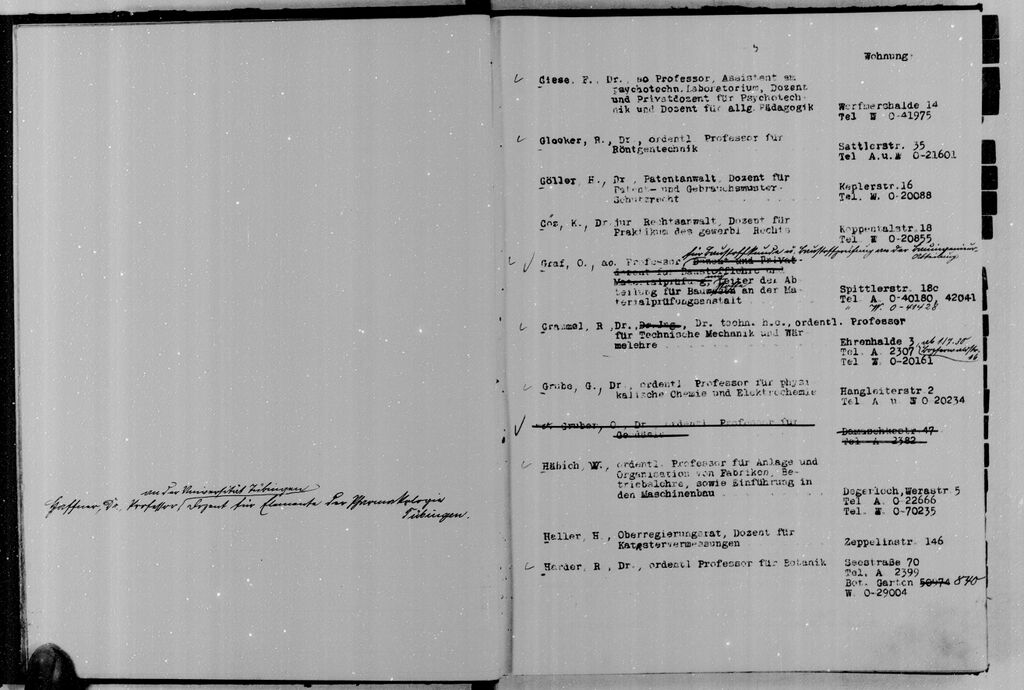 an der Universität Tübingen
Gaffner, Dr. Professor, Dozent für Elemente der Pharmakologie
Tübingen.
Wohnung
Giese, F., Dr., ao Professor, Assistent am
psychotechn. Laboratorium, Dozent
und Privatdozent für Psychotech-
nik und Dozent für allg. Pädagogik
Werfmershalde 14
Tel W 0-41975
Glocker, R., Dr., ordentl Professor für
Röntgentechnik
Sattlerstr. 35
Tel A.u.W 0-21601
Göller, H., Dr., Patentanwalt, Dozent für
Patent- und Gebrauchsmuster-
Schutzrecht
Keplerstr.16
Tel. W. 0-20088
Göz, K., Dr jur Rechtsanwalt, Dozent für
Praktikum des gewerbl Rechts
Koppentalstr.18
Tel W 0-20855
für Baustoffkunde u. Baustoffprüfung an der Bauingenieur-
Abteilung
Graf, O., ao. Professor Dozent und Privat-
dozent für Baustofflehre und
Materialprüfung, Leiter der Ab-
teilung für an der Ma-
terialprüfungsanstalt
Spittlerstr. 18c
Tel A. 0-40180, 42041
" W. 0-41428
Grammel, R ,Dr.,Dr.Ing., Dr. techn. h.c., ordentl. Professor
für Technische Mechanik und Wär
melehre
Ehrenhalde 3 ab 1.7.30
Tel. A. 2307
Tel W. 0-20161
Grube, G., Dr., ordentl Professor für physi
kalische Chemie und Elektrochemie
Hangleiterstr 2
Tel A u. W 0 20234
Gruber, O., Dr ordentl Professor für
Geodäsie
Damaschkestr 47
Tel A 2382
Häbich, W., ordentl. Professor für Anlage und
Organisation von Fabriken, Be-
triebslehre, sowie Einführung in
den Maschinenbau
Degerloch,Werastr 5
Tel A. 0-22666
Tel. W. 0-70235
Haller, H., Oberregierungsrat, Dozent für
Katastervermessungen
Zeppelinstr. 146
Harder, R., Dr., ordentl Professor für Botanik
Seestraße 70
Tel. A 2399
Bot. Garten 50974 840
W. 0-29004